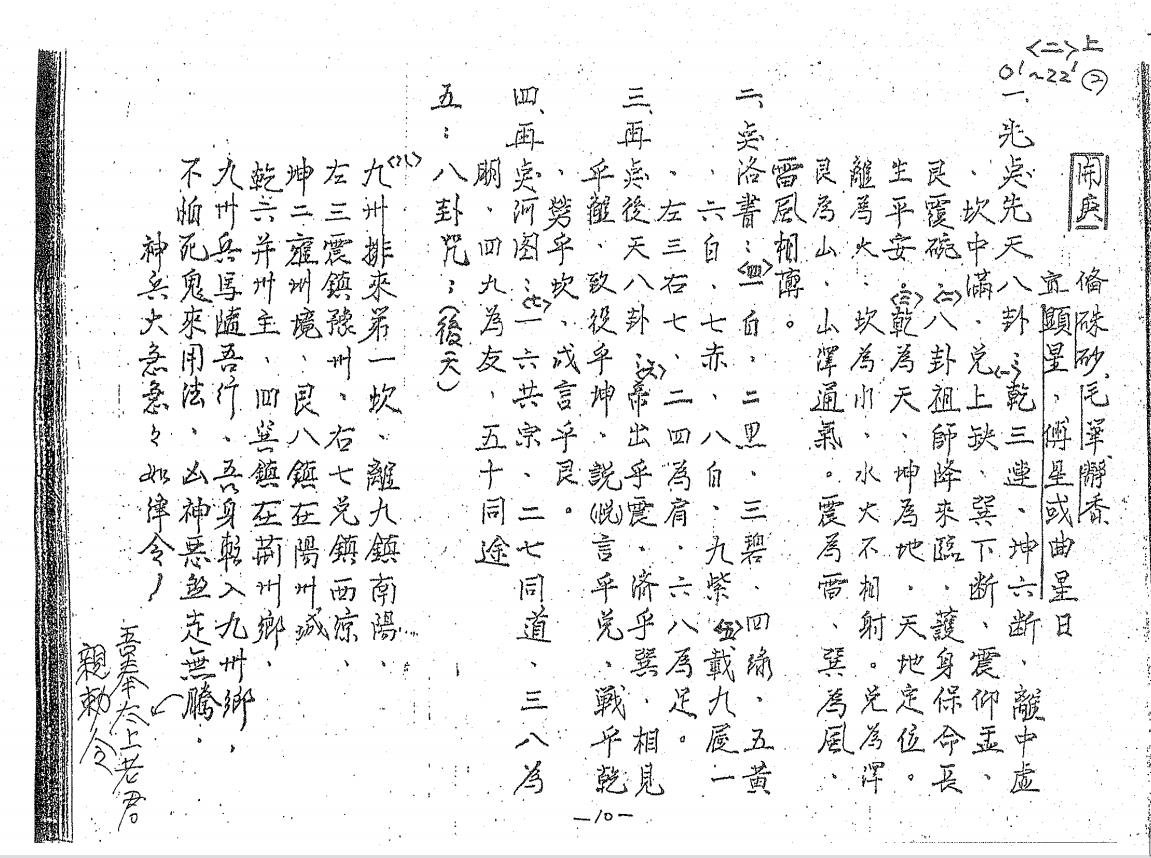 <二>上
0'~22' ②
開典
備硃砂、毛筆、嚼香
宜顯星、傅星或曲星日
一、先点先天八卦：<一>乾三連、坤六断、離中虛
、坎中滿、兌上缺、巽下断、震仰盂、
艮覆碗、<二>八卦祖師降來臨、護身保命長
生平安、<三>乾為天、坤為地、天地定位。
離為火、坎為水、水火不相射。兌為澤
艮為山、山澤通氣。震為雷、巽為風、
雷風相薄。
二、点洛書：<四>一白、二黑、三碧、四綠、五黃
、六白、七赤、八白、九紫<五>載九履一
、左三右七、二四為肩、六八為足。
三、再点後天八卦：<六>帝出乎震、濟乎巽、相見
乎離、致役乎坤、說(悅)言乎兌、戰乎乾
、勞乎坎、成言乎艮。
四、再点河图：<七>一六共宗、二七同道、三八為
朋、四九為友、五十同途
五：八卦咒：(後天)
<八>九州排來第一坎、離九鎮南陽、
左三震鎮豫州、右七兌鎮西涼、
坤二雍州境、艮八鎮在陽州城
乾六并州主、四巽鎮在荊州鄉、
九州兵馬隨吾行、吾身転入九州鄉、
不怕死鬼來用法、凶神惡煞走無騰。
神兵火急急々如律令
吾奉太上老君
親勅令
—10—